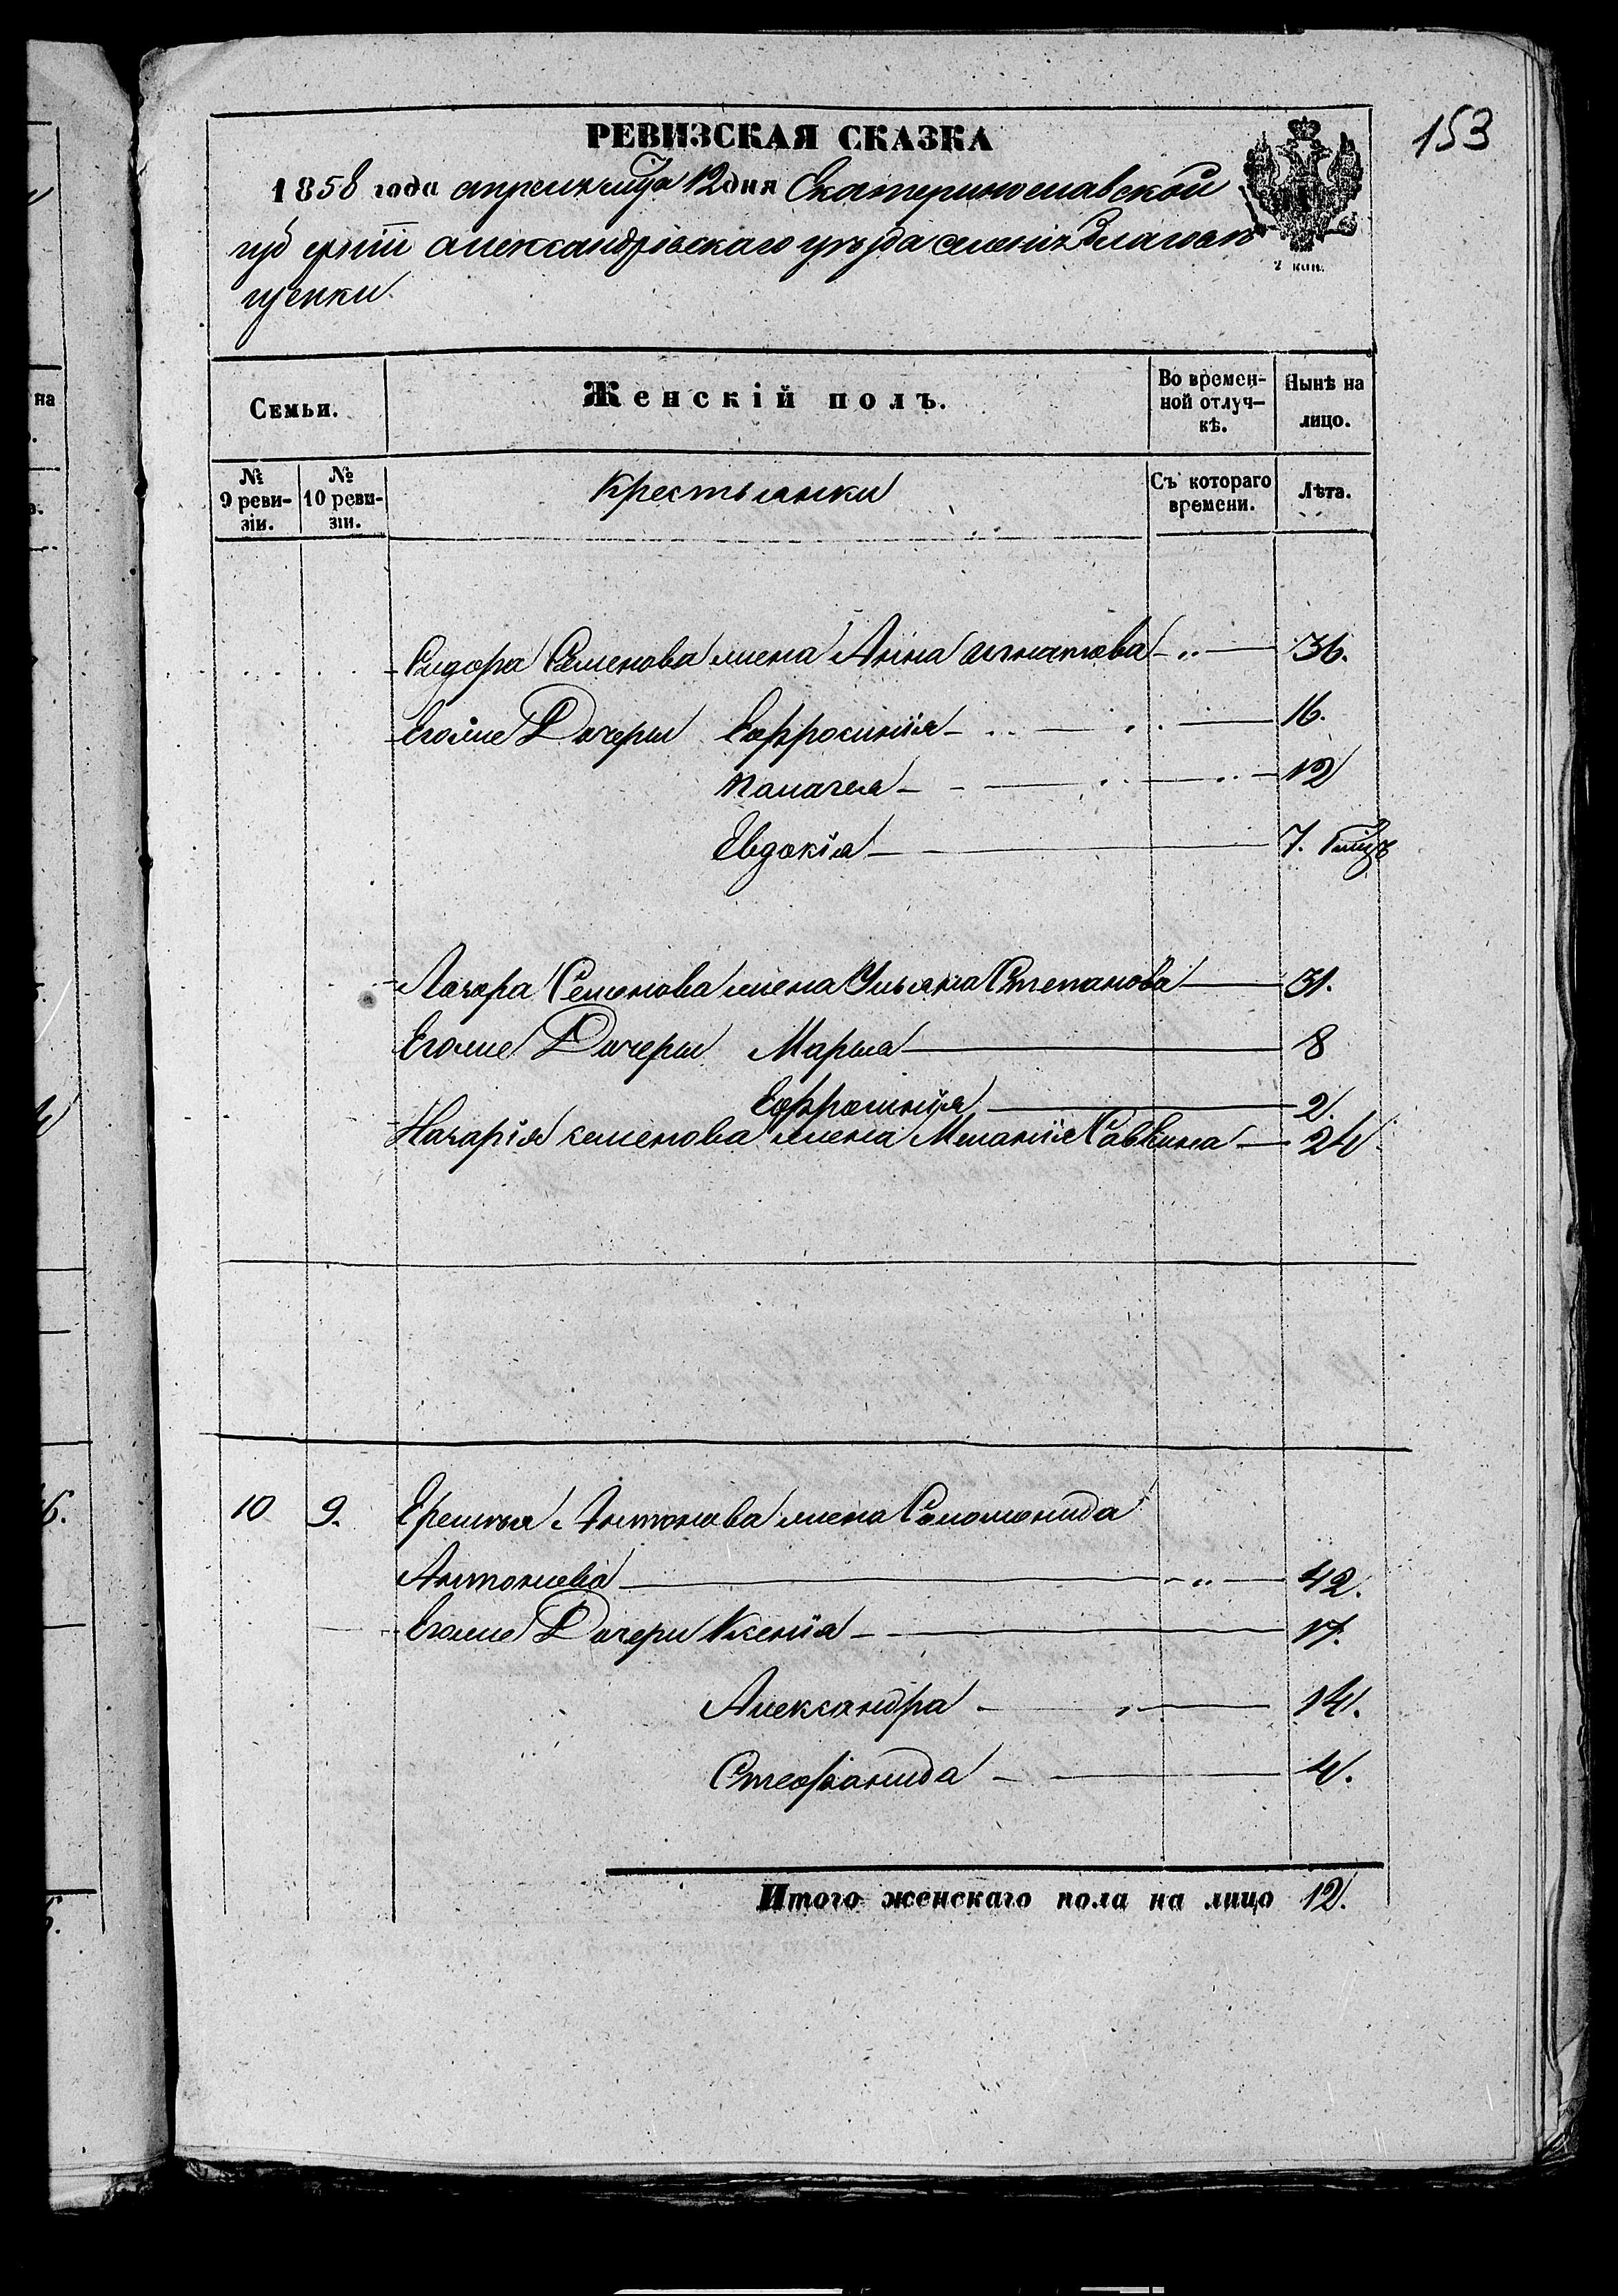 153
РЕВИЗСКАЯ СКАЗКА
1858 года апреля мца 12 дня Екатеринославской
губернiи александрiвскаго уѣзда селенiя Благовѣ
щенки
2 коп.
Семьи.
Женскій полъ.
Во времен-
ной отлуч-
кѣ.
Нынѣ на
лицо.
№ 9 реви-
зіи.
№ 10 реви-
зіи.
Крестьянки
Съ котораго
времени.
Лѣта.
Сидора Семенова жена Анна Игнатова 36.
Егоже Дочери Ефросинія 16.
Палагея 12
Евдокія 7.
Лазора Семенова жена Ульяна Степанова 31.
Егоже Дочери Марья 8
Ефросинія 2.
Назарія семенова жена Меланія Савкина 24
10 9. Еремѣя Антонова жена Соломонида
Антонова 42.
Егоже Дочери Ксенія 17.
Александра 14.
Стефанида 4.
Итого женскаго пола на лицо 12.